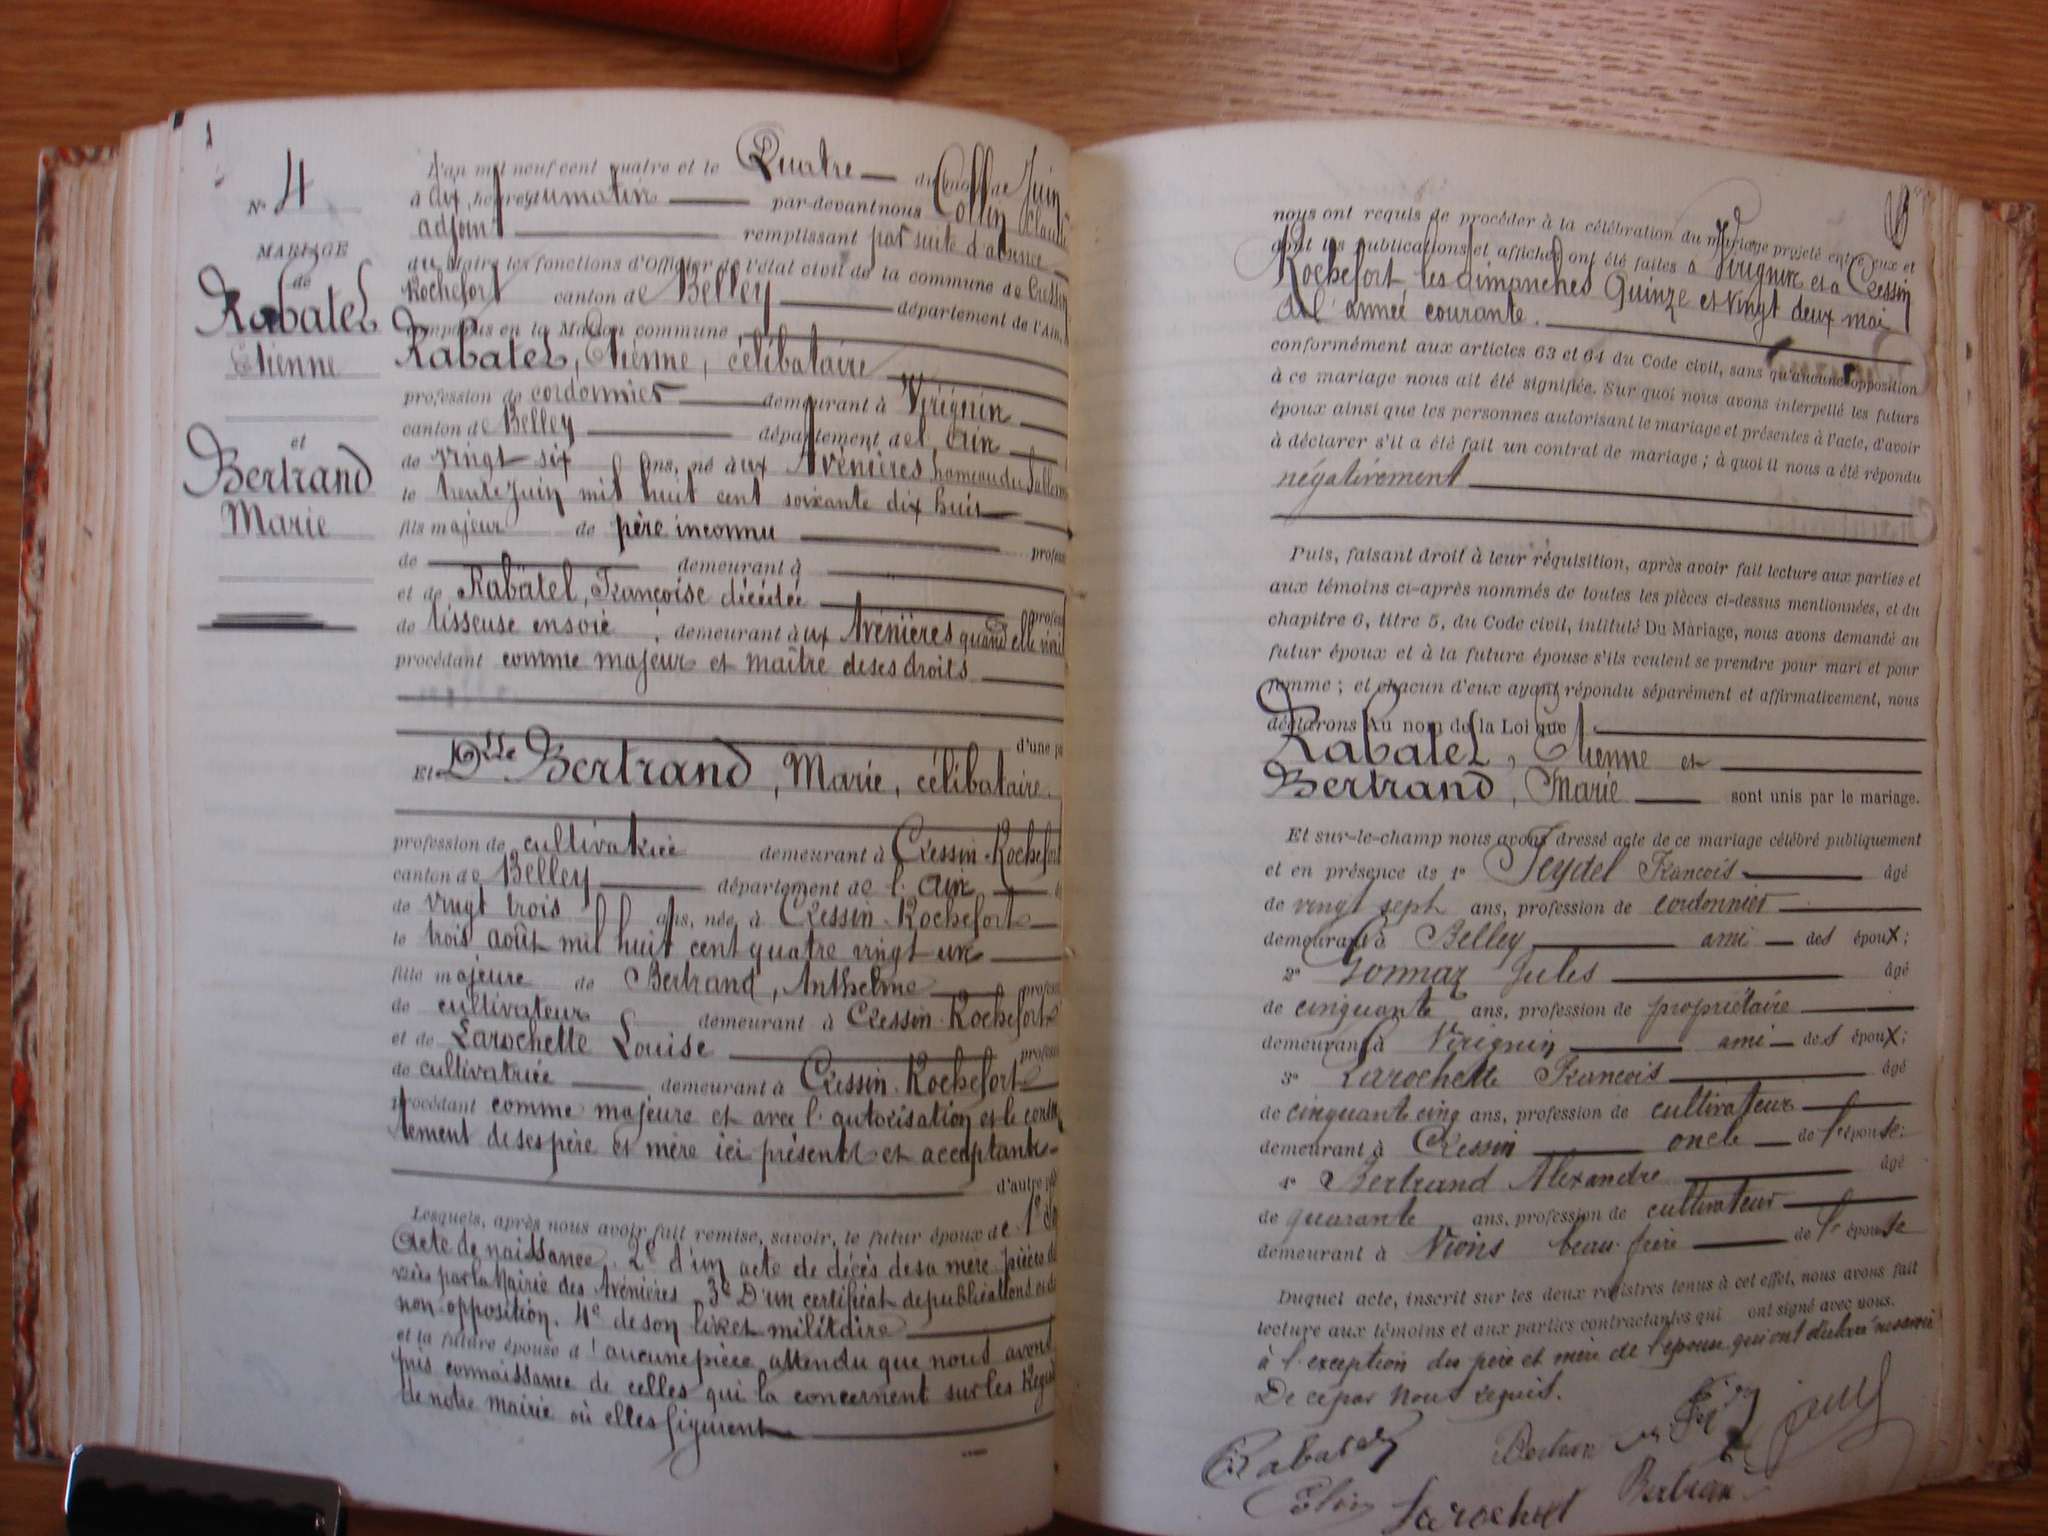 1
N° 4
MARIAGE
de
Rabatel
Etienne
et
Bertrand
Marie
L'an mil neuf cent quatre et le Quatre du mois de Juin
à dix heures du matin par-devant nous Collin Claude
adjoint remplissant par suite d'absence
du Maire les fonctions d'Officier de l'état civil de la commune de Cressin
Rochefort canton de Belley département de l'Ain,
comparus en la Maison commune
Rabatel, Etienne, célibataire
profession de cordonnier demeurant à Virignin
canton de Belley département de l'Ain
de vingt six ans, né aux Avénières, hameau du
le trente Juin mil huit cent soixante dix huit
fils majeur de père inconnu profess
de demeurant à
et de Rabatel, Françoise décédée profess
de tisseuse en soie demeurant aux Avénières quand elle vivait
procédant comme majeur et maître de ses droits
d'une pa
Et Dlle Bertrand, Marie, célibataire.
profession de cultivatrice demeurant à Cressin-Rochefort
canton de Belley département de l'Ain
de vingt trois ans, née à Cressin-Rochefort
le trois août mil huit cent quatre vingt un
fille majeure de Bertrand, Anthelme profess
de cultivateur demeurant à Cressin-Rochefort
et de Larochette Louise profess
de cultivatrice demeurant à Cressin-Rochefort
procédant comme majeure et avec l'autorisation et le consen
tement de ses père et mère ici présents et acceptants
d'autre pa
Lesquels, après nous avoir fait remise, savoir, le futur époux de 1° son
acte de naissance. 2° d'un acte de décès de sa mère pièces dé
livrées par la Mairie des Avénières 3° D'un certificat de publications et de
non opposition. 4° de son livret militaire
et la future épouse d'aucune pièce attendu que nous avons
pris connaissance de celles qui la concernent sur les Regis
de notre mairie où elles figurent
nous ont requis de procéder à la célébration du mariage projeté entre eux et
dont les publications et affiches ont été faites à Virignin et à Cressin
Rochefort les dimanches Quinze et vingt deux mai
de l'année courante.
conformément aux articles 63 et 64 du Code civil, sans qu'aucune opposition
à ce mariage nous ait été signifiée. Sur quoi nous avons interpellé les futurs
époux ainsi que les personnes autorisant le mariage et présentes à l'acte, d'avoir
à déclarer s'il a été fait un contrat de mariage ; à quoi il nous a été répondu
négativement
Puis, faisant droit à leur réquisition, après avoir fait lecture aux parties et
aux témoins ci-après nommés de toutes les pièces ci-dessus mentionnées, et du
chapitre 6, titre 5, du Code civil, intitulé Du Mariage, nous avons demandé au
futur époux et à la future épouse s'ils veulent se prendre pour mari et pour
femme ; et chacun d'eux ayant répondu séparément et affirmativement, nous
déclarons Au nom de la Loi que
Rabatel, Etienne et
Bertrand, Marie sont unis par le mariage.
Et sur-le-champ nous avons dressé acte de ce mariage célébré publiquement
et en présence de 1° Seydel Francois âgé
de vingt sept ans, profession de cordonnier
demeurant à Belley ami des époux ;
2° Jules âgé
de cinquante ans, profession de propriétaire
demeurant à Virignin ami des époux ;
3° Larochette Francois âgé
de cinquante cinq ans, profession de cultivateur
demeurant à Cressin oncle de l'épouse ;
4° Bertrand Alexandre âgé
de quarante ans, profession de cultivateur
demeurant à Vions beau-frère de l'épouse
Duquel acte, inscrit sur les deux registres tenus à cet effet, nous avons fait
lecture aux témoins et aux parties contractantes qui ont signé avec nous.
à l'exception des père et mère de l'épouse qui ont déclaré ne savoir
De ce par Nous requis.
Rabatel
Colin Larochet Bertran